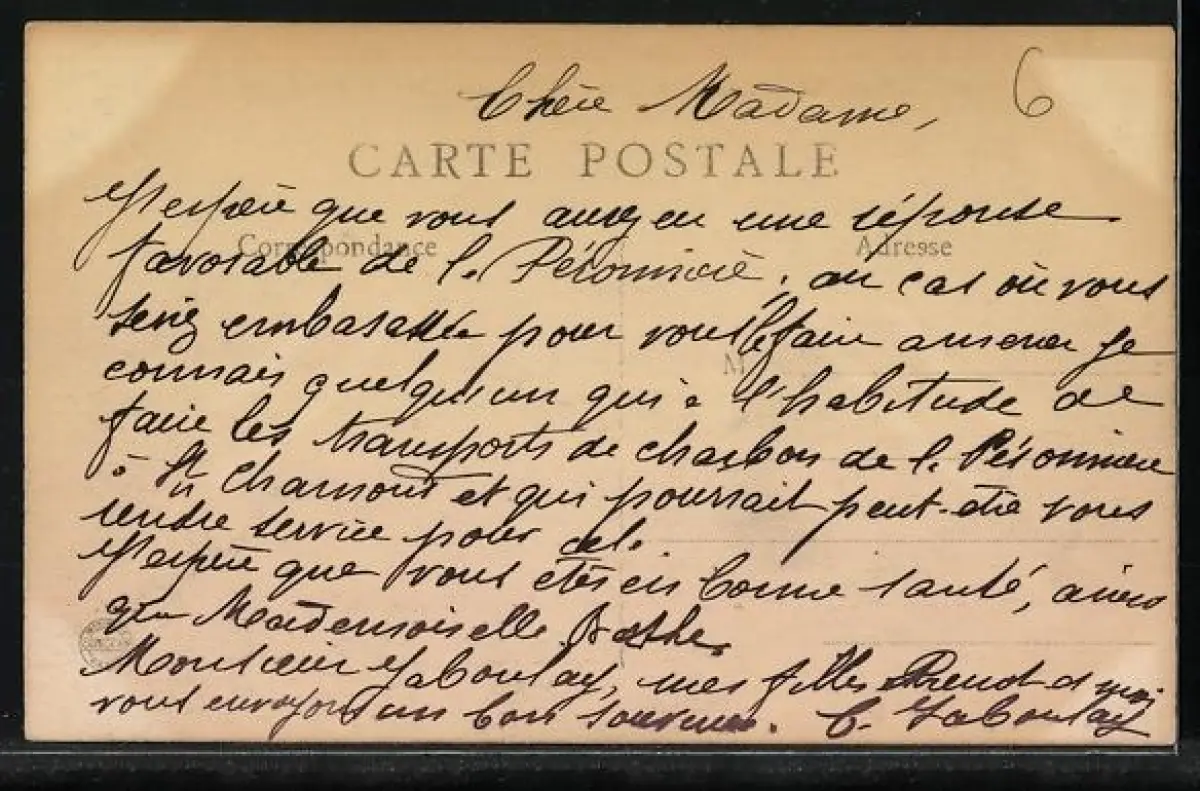 6
Chère Madame,
CARTE POSTALE
J'espère que vous aurez eu une réponse
Correspondance
Adresse
favorable de la Péronnière, au cas où vous
seriez embarassée pour vous le faire amener je
M
connais quelqu'un qui a l'habitude de
faire les transports de charbon de la Péronnière
à St Chamond et qui pourrait peut-être vous
rendre service pour cela.
J'espère que vous êtes en bonne santé, ainsi
que Mademoiselle
Monsieur Jaboulay, mes filles et moi
vous envoyons un bon souvenir. C. Jaboulay